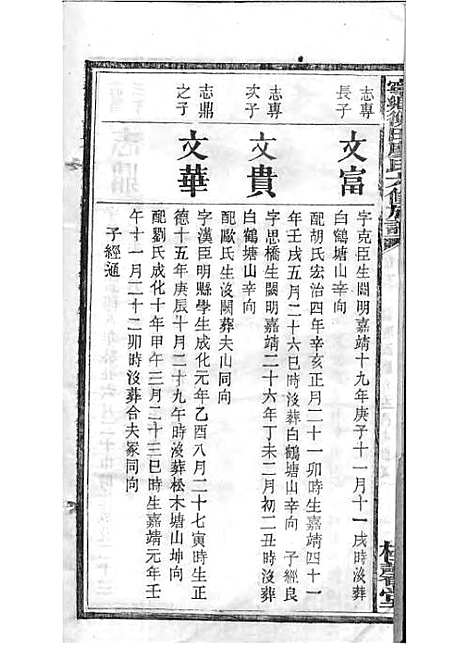 志專
長子
文富
字克臣生闕明嘉靖十九年庚子十一月十一戌時沒葬
白鶴塘山辛向
配胡氏宏治四年辛亥正月二十一卯時生嘉靖四十一
年壬戌五月二十六巳時沒葬白鶴塘山辛向 子經良
志專
次子
文貴
字思橋生闕明嘉靖二十六年丁未二月初二丑時沒葬
白鶴塘山辛向
配歐氏生沒闕葬夫山同向
志鼎
之子
文華
字漢臣明縣學生成化元年乙酉八月二十七寅時生正
德十五年庚辰十月二十九午時沒葬松木塘山坤向
配劉氏成化十年甲午三月二十三巳時生嘉靖元年壬
午十一月二十二卯時沒葬合夫冢同向
子經通